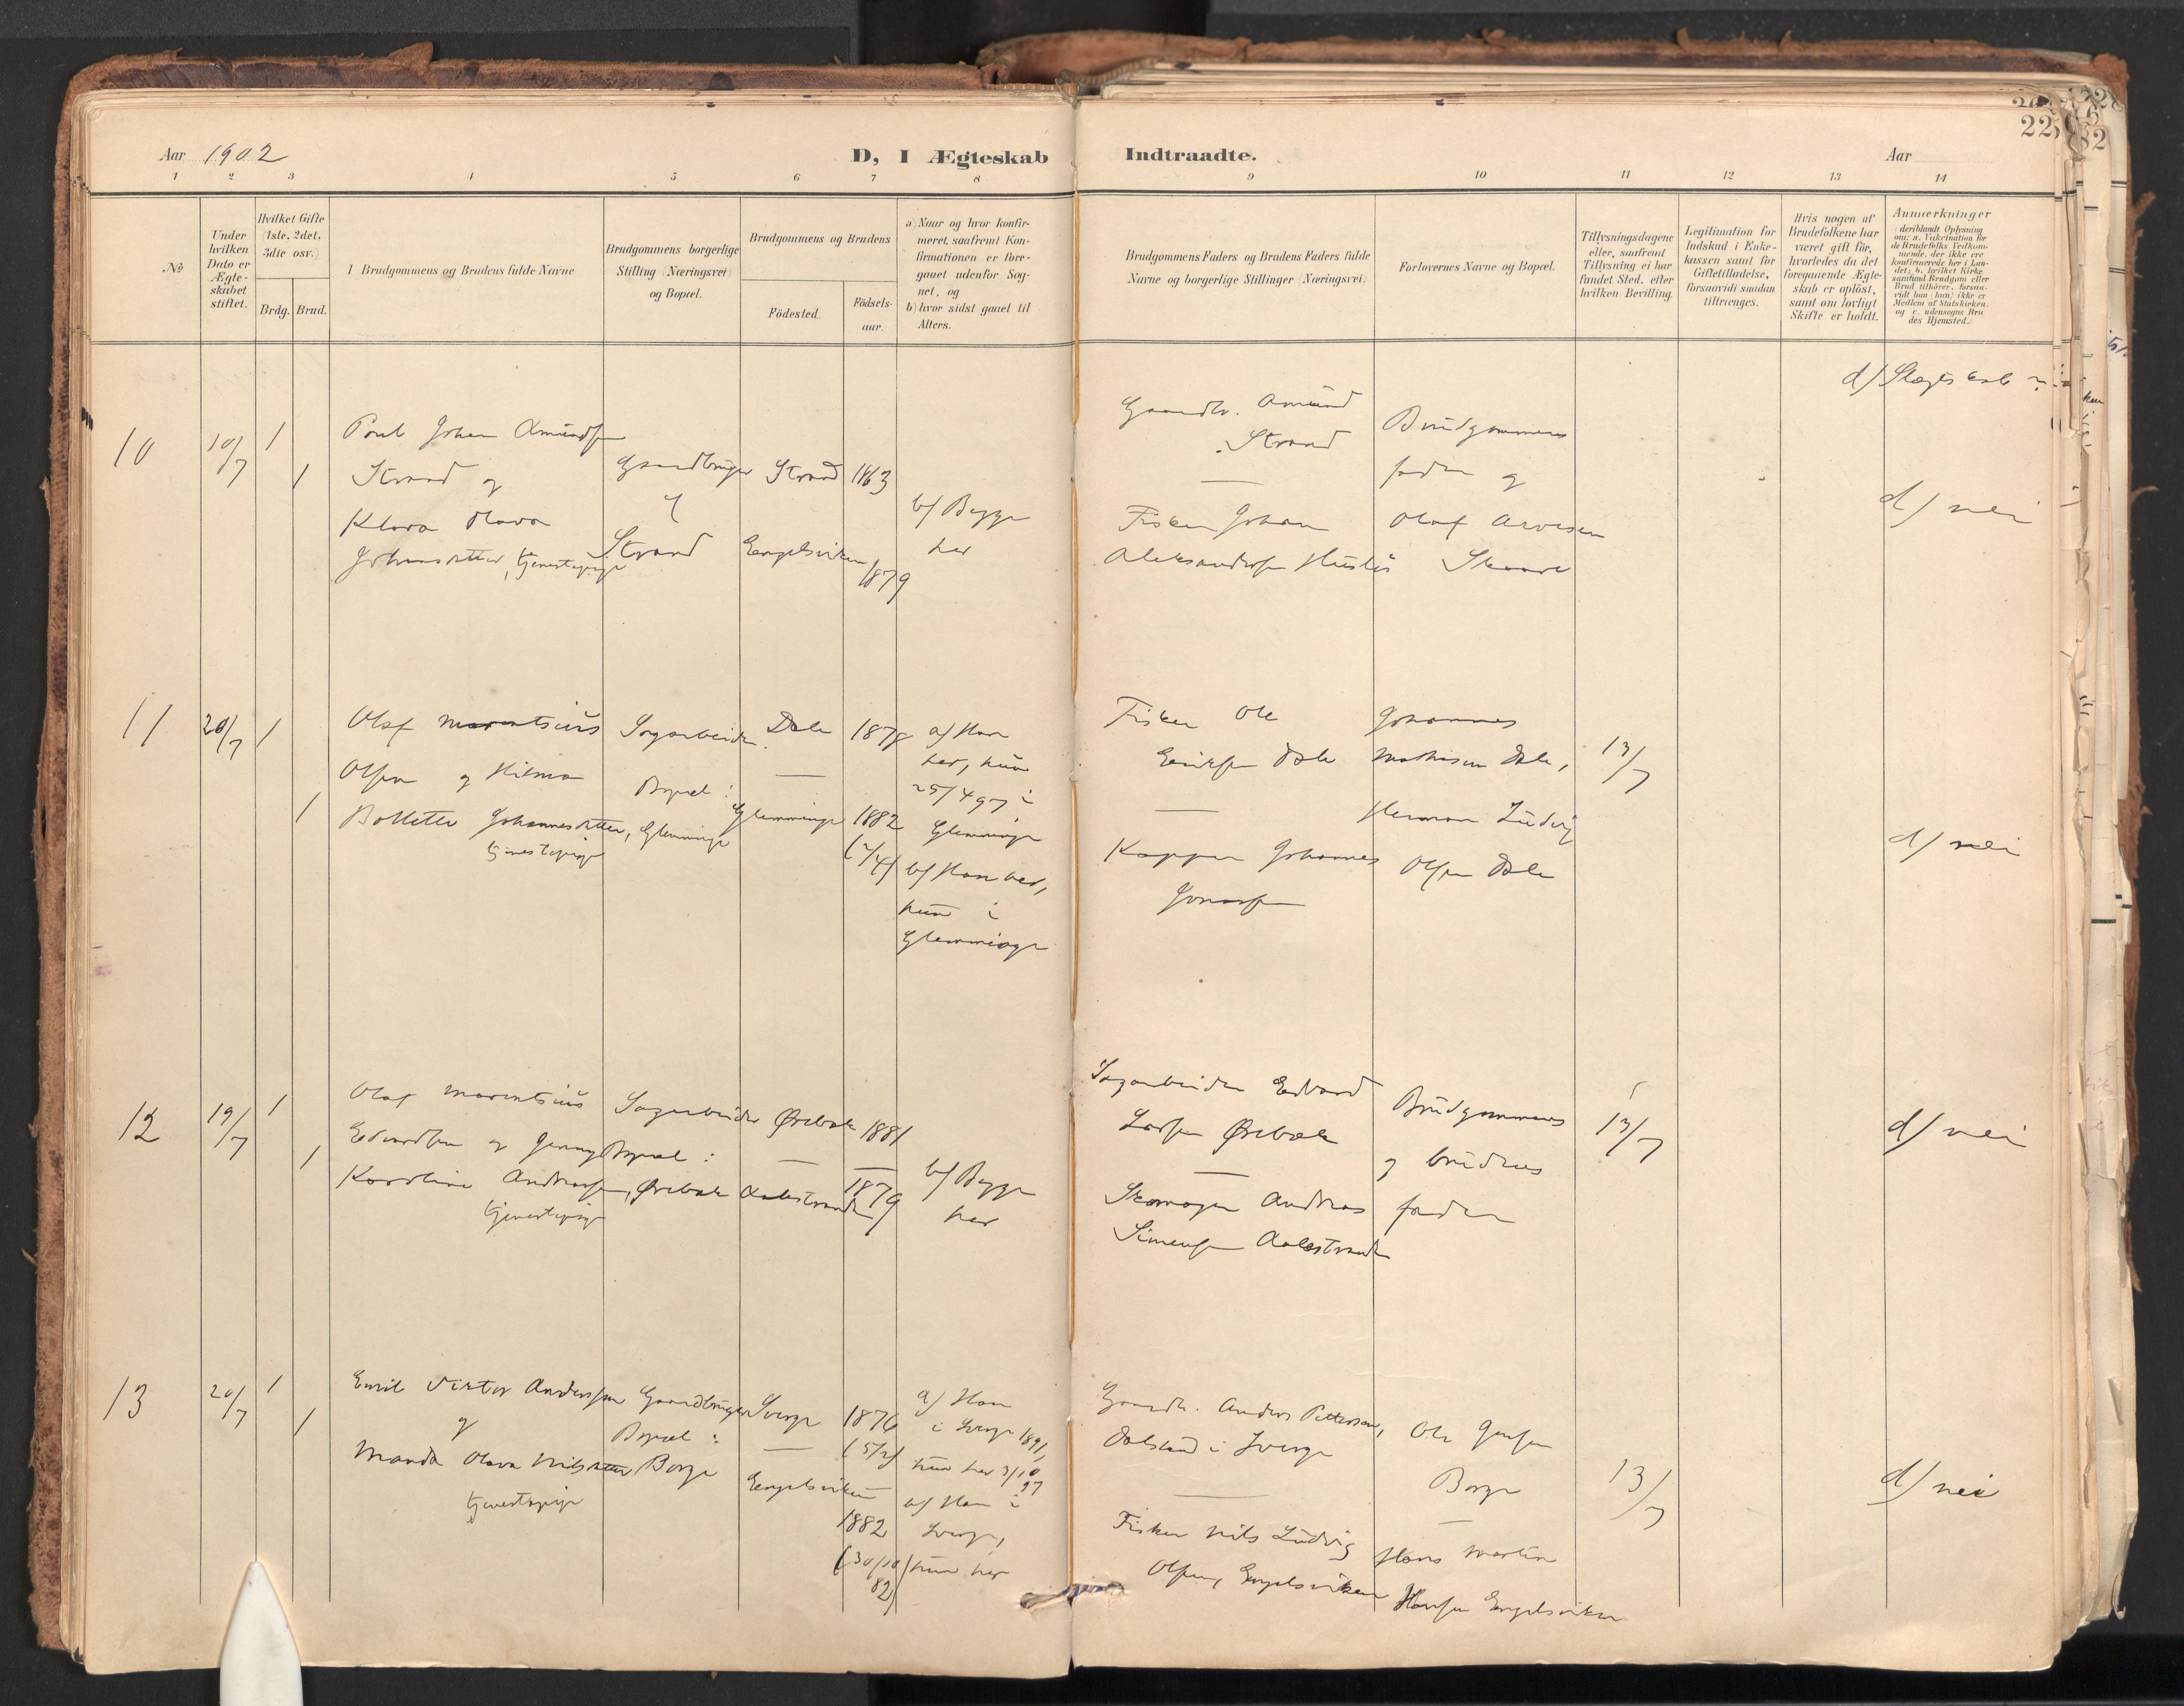 Aar 1902
D, I Ægteskab
Indtraadte.
Aar
22
1 2 3 4 5 6 7 8 9 10 11 12 13 14
No
Under hvilken Dato er Ægteskabet stiftet.
Hvilket Gifte (1ste, 2det, 3die osv.)
Brdg. Brud.
Brudgommens og Brudens fulde Navne
Brudgommens borgerlige Stilling (Næringsvei) og Bopæl.
Brudgommens og Brudens
Födested.
Födsels-aar.
a) Naar og hvor konfirmeret, saafremt Konfirmationen er foregaaet udenfor Sognet, og
b) hvor sidst gaaet til Alters.
Brudgommens Faders og Brudens Faders fulde Navne og borgerlige Stillinger (Næringsvei)
Forlovernes Navne og Bopæl.
Tillysningsdagene eller, saafremt Tillysning ei har fundet Sted, efter hvilken Bevilling.
Legitimation for Indskud i Enkekassen samt for Giftetilladelse, forsaavidt saadan tiltrænges.
Hvis nogen af Brudefolkene har været gift för, hvorledes da det foregaaende Ægteskab er oplöst, samt om lovligt Skifte er holdt.
Anmerkninger (deriblandt Oplysning om: a. Vakcination for de Brudefolks Vedkommende, der ikke ere konfirmerede her i Landet; b. hvilket Kirkesamfund Brudgom eller Brud tilhörer, forsaavidt han (hun) ikke er Medlem af Statskirken, og c. udensogns Brudes Hjemsted.)
d/ Slægtskab
10
10/7
1
1
Poul Johan Amundsen
Strand og
Klara Olava
Johansdatter, tjenestepige
Gaardbruger
Strand
Strand 1863
Engelsviken
1879
b/ Begge
her
Gaardbr. Amund
Strand
Fisker Johan
Aleksandersen Huslös
Brudgommens
fader og
Olaf Arvesen
Skaare
d/ nei
11
20/7
1
1
Olaf Marentsius
Olsen og Hilma
Bollette Johannesdatter,
tjenestepige
Sagarbeider
Bopæl:
Glemminge
Dale 1878
Glemminge 1882
(2/4)
a/ Han
her, hun
25/4 97 i
Glemminge
b/ Han her,
hun i
Glemminge
Fisker Ole
Eriksen Dale
Johannes
Jonassen
Johannes
Mathisen Dale,
Herman Ludvig
Olsen Dale
13/7
d/ nei
12
19/7
1
1
Olaf Marentsius
Edvardsen og Jenny
Karoline Andreassen,
tjenestepige
Sagarbeider
Bopæl:
Ørebæk
Ørebæk 1881
Aalestranden
1879
b/ Begge
her
Sagarbeider Edvard
Larsen Ørebæk
Skomager Andreas
Simensen Aalestranden
Brudgommens
og brudens
fader
13/7
d/ nei
13
20/7
1
1
Emil Victor Anderssen
og
Manda Olava Nilsdatter
tjenestepige
Gaardbruger
Bopæl:
Borge
Sverge 1876
(5/2)
Engelsviken
1882
(30/10
82)
a/ Han
i Sverge 1891,
hun her 3/10
97
b/ Han i
Sverge,
hun her
Gaardbr. Anders Petterson,
Dalsland i Sverge
Fisker Nils Ludvig
Olsen, Engelsviken
Ole Jensen
Borge
Hans Martin
Hansen Engelsviken
13/7
d/ nei